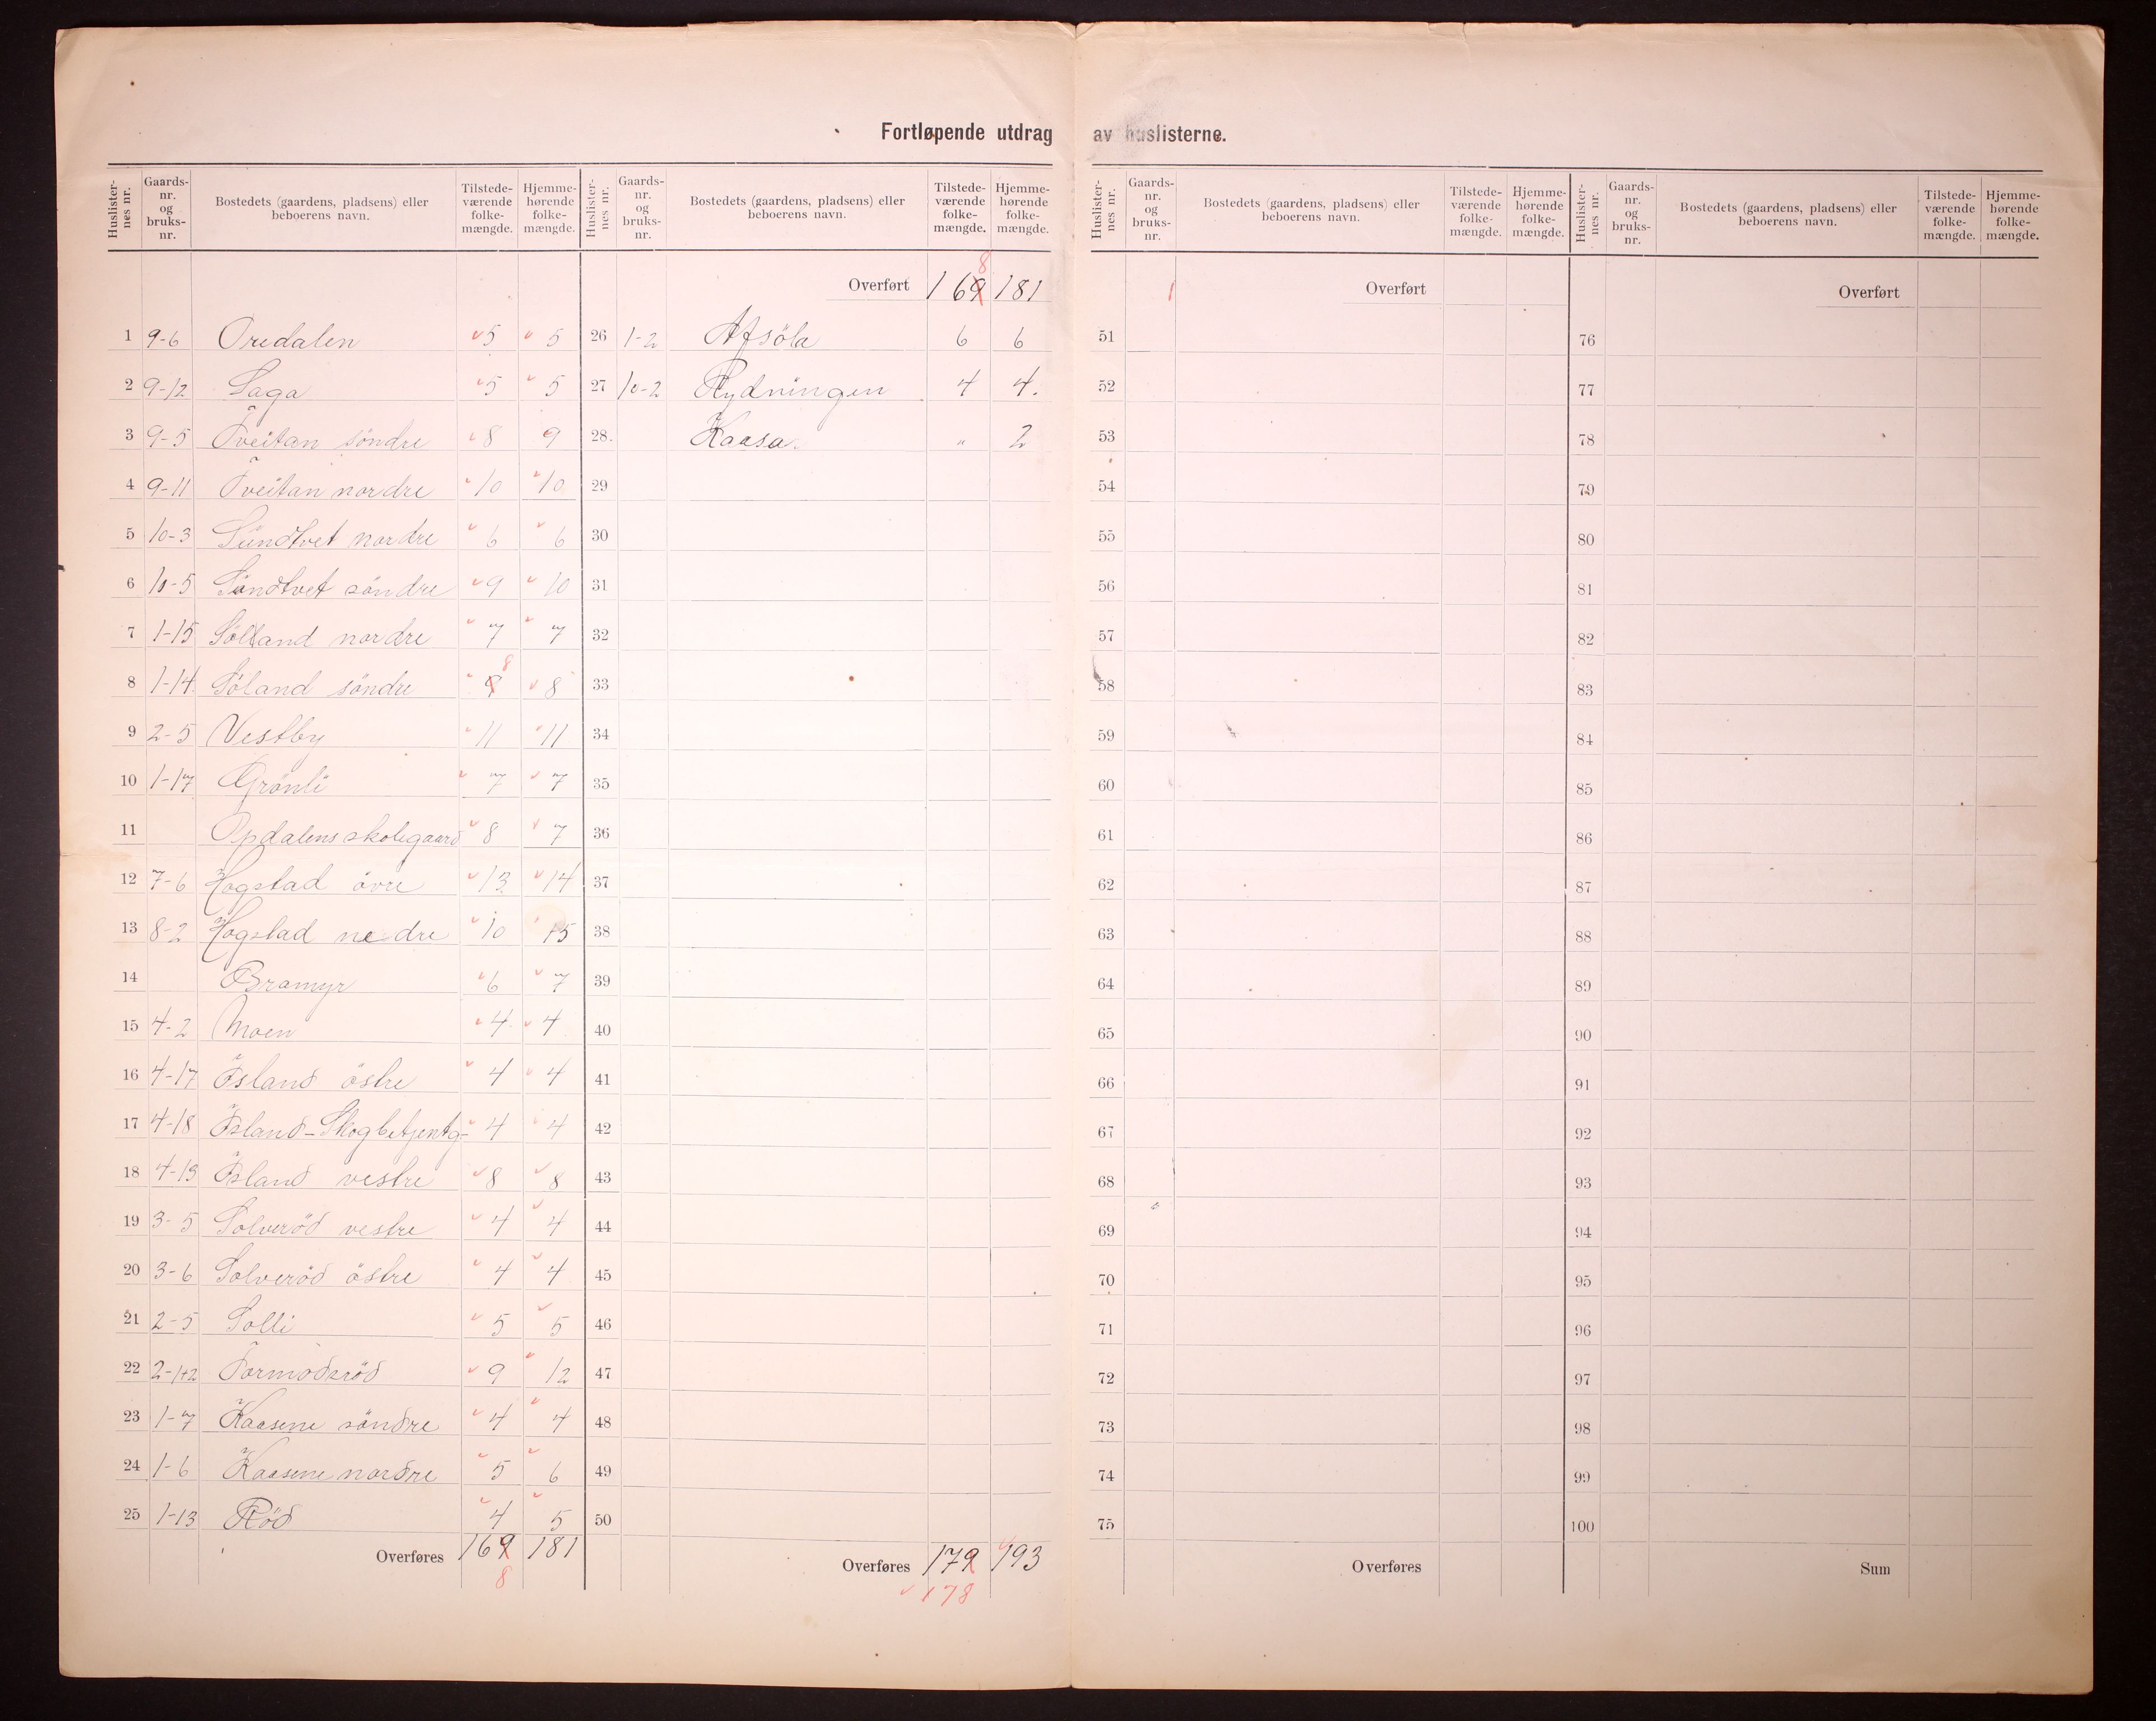 Fortløpende utdrag av huslisterne.
Huslisternes nr. Gaardsnr. og bruksnr. Bostedets (gaardens, pladsens) eller beboerens navn. Tilstedeværende folkemængde. Hjemmehørende folkemængde.
1 9-6 Oredalen 5 5
2 9-12 Saga 5 5
3 9-5 Tveitan söndre 8 9
4 9-11 Tveitan nordre 10 10
5 10-3 Sündtvet nordre 6 6
6 10-5 Sündtvet söndre 9 10
7 1-15 Sölland nordre 7 7
8 1-14 Söland söndre 9 8 8
9 2-5 Vestby 11 11
10 1-17 Grönli 7 7
11 Opdalens skolegaard 8 7
12 7-6 Hogstad övre 13 14
13 8-2 Hogstad nedre 10 15
14 Bramyr 6 7
15 4-2 Moen 4 4
16 4-17 Ösland östre 4 4
17 4-18 Ösland-Skogbetjentg- 4 4
18 4-19 Ösland vestre 8 8
19 3-5 Solveröd vestre 4 4
20 3-6 Solveröd östre 4 4
21 2-5 Solli 5 5
22 2-1+2 Tormodsröd 9 12
23 1-7 Kaasene söndre 4 4
24 1-6 Kaasene nordre 5 6
25 1-13 Röd 4 5
Overføres 169 181
8
Huslisternes nr. Gaardsnr. og bruksnr. Bostedets (gaardens, pladsens) eller beboerens navn. Tilstedeværende folkemængde. Hjemmehørende folkemængde.
8
Overført 169 181
26 1-2 Afsöla 6 6
27 10-2 Rydningen 4 4.
28. Kaasa. " 2
29
30
31
32
33
34
35
36
37
38
39
40
41
42
43
44
45
46
47
48
49
50
Overføres 179 193
178
Huslisternes nr. Gaardsnr. og bruksnr. Bostedets (gaardens, pladsens) eller beboerens navn. Tilstedeværende folkemængde. Hjemmehørende folkemængde.
1 Overført
51
52
53
54
55
56
57
58
59
60
61
62
63
64
65
66
67
68
69
70
71
72
73
74
75
Overføres
Huslisternes nr. Gaardsnr. og bruksnr. Bostedets (gaardens, pladsens) eller beboerens navn. Tilstedeværende folkemængde. Hjemmehørende folkemængde.
Overført
76
77
78
79
80
81
82
83
84
85
86
87
88
89
90
91
92
93
94
95
96
97
98
99
100
Sum